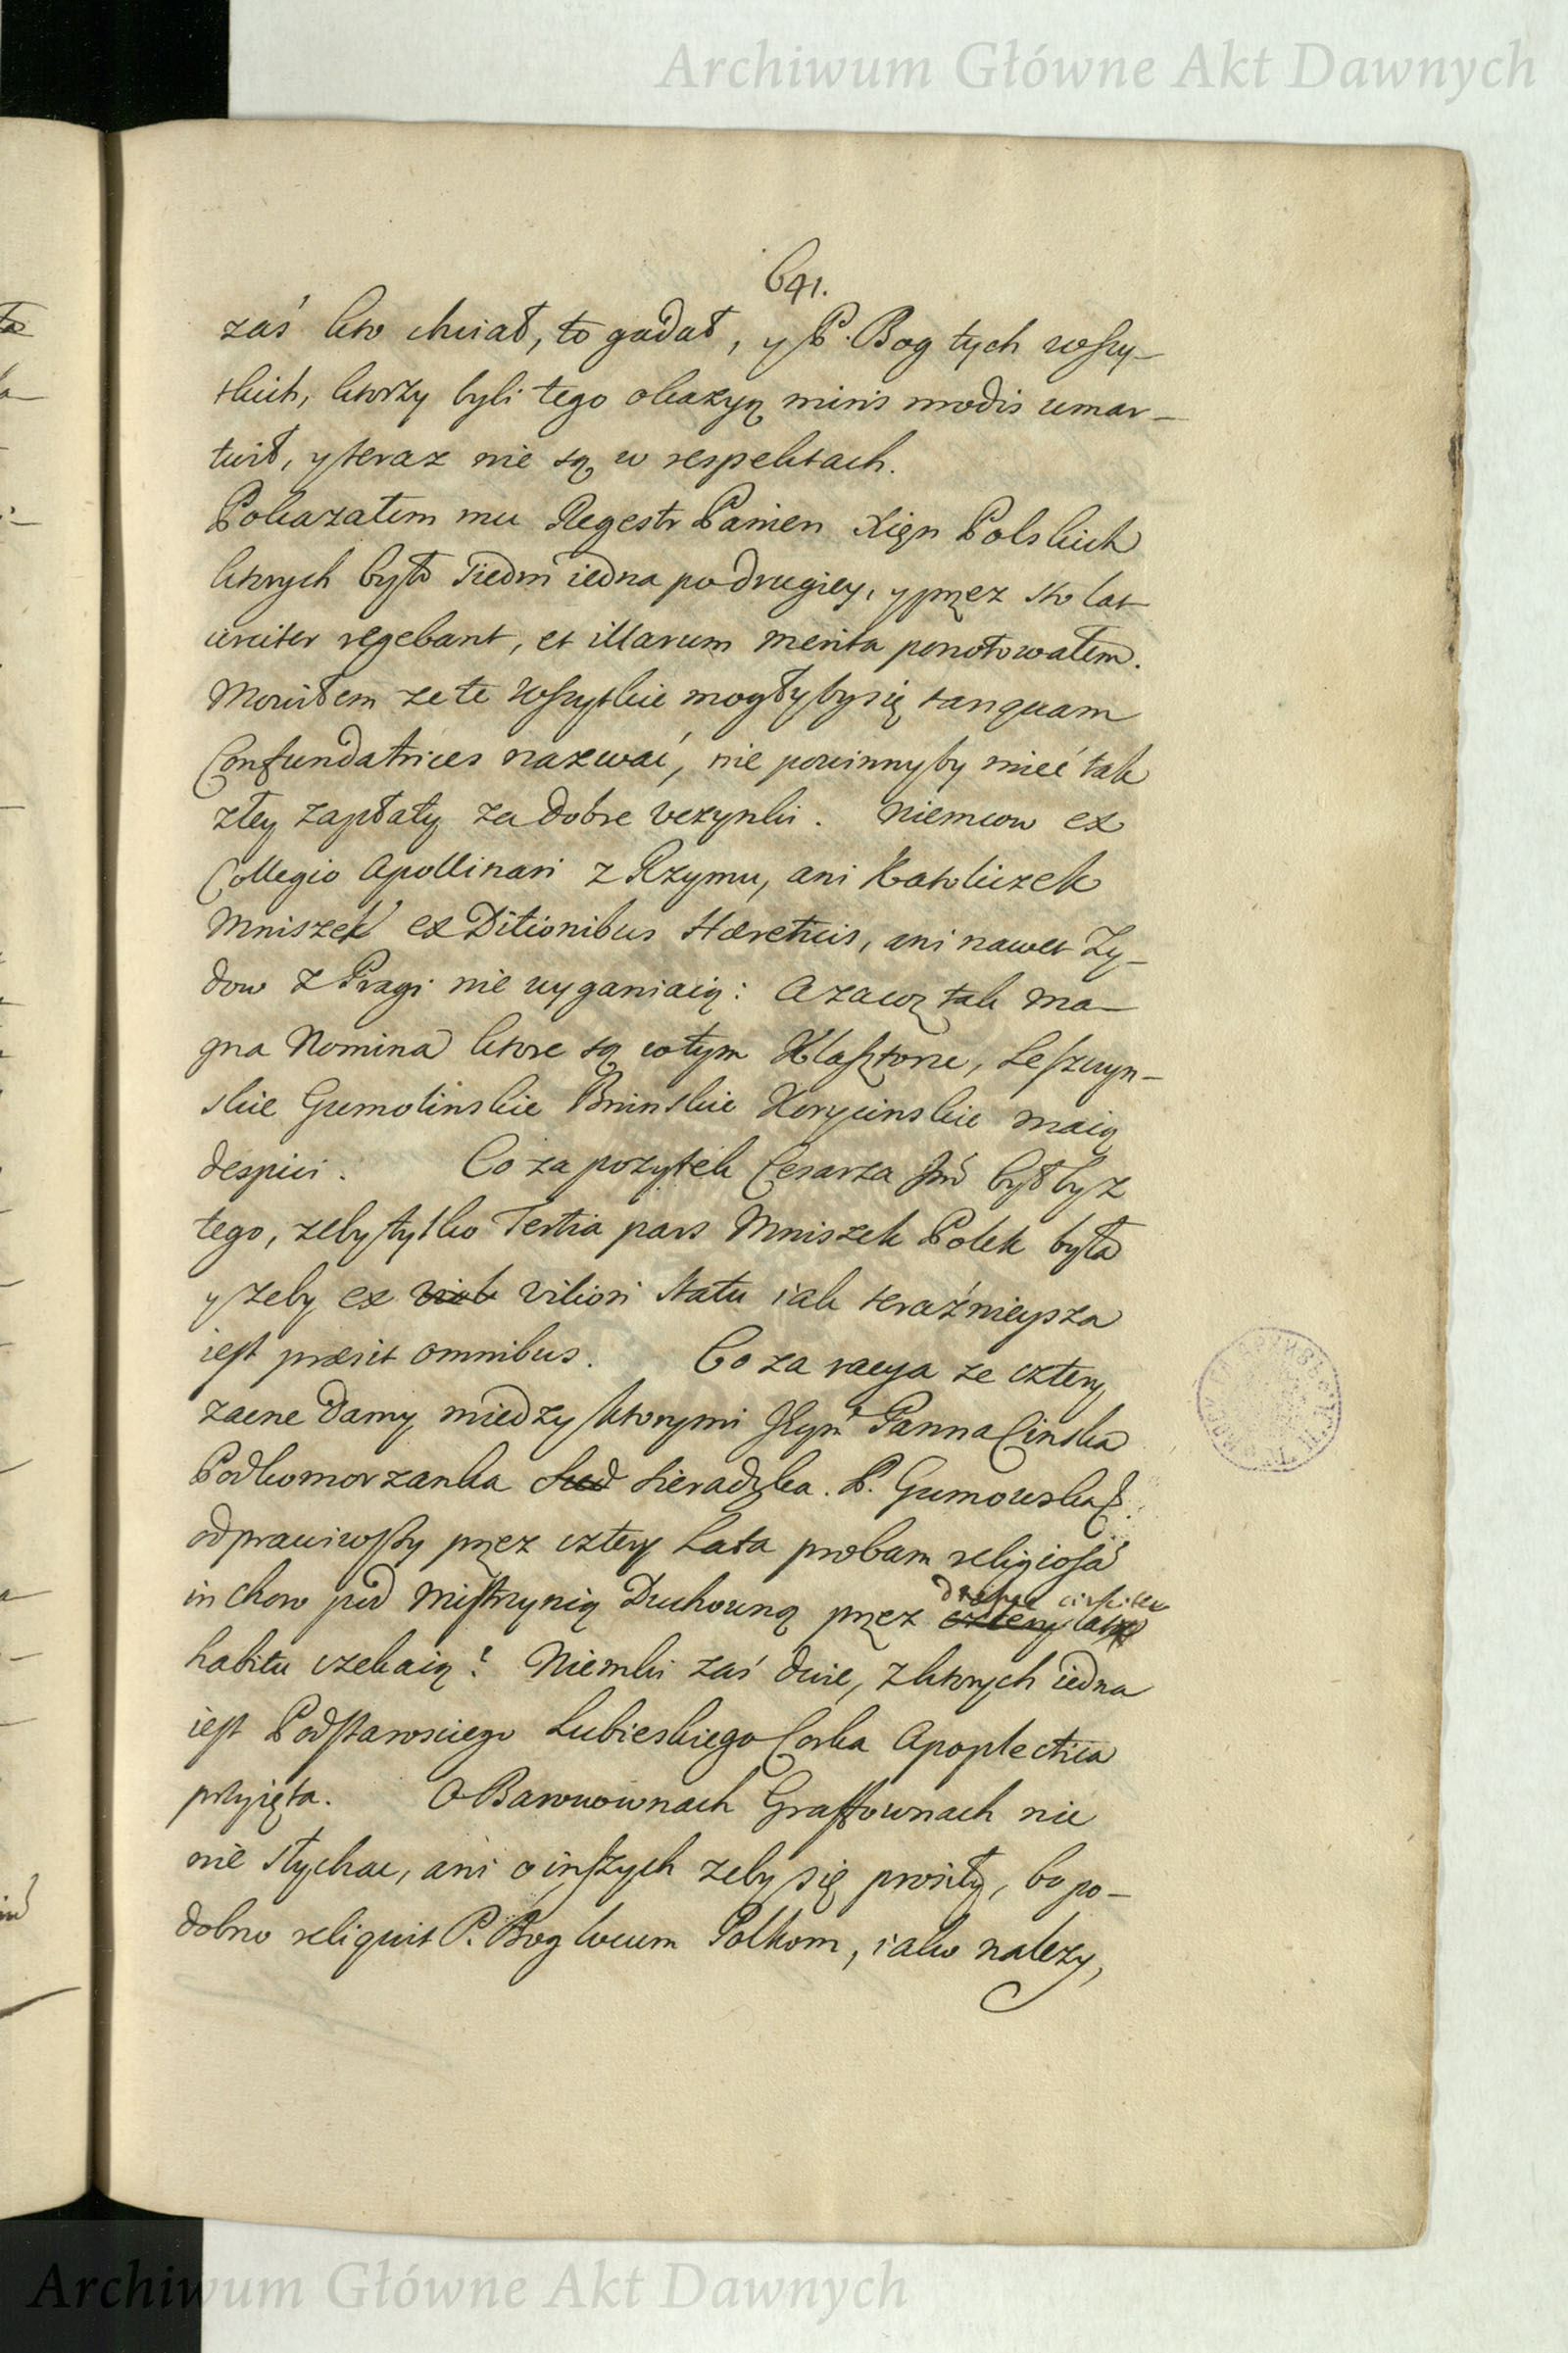 Archiwum Główne Akt Dawnych
641.
zaś kto chciał, to gadał, y P. Bog tych wszy-
stkich, ktorzy byli tego okazyą miris modis umar-
twił, y teraz nie są w respektach.
Pokazałem mu Regestr Panien Xięn Polskich
ktorych było siedm iedna po drugiey, y przez sto lat
uniter regebant, et illarum merita ponotowałem.
Mowiłem ze te wszystkie mogłyby się tanquam
Confundatrices nazwać, nie powinnyby mieć tak
złey zapłaty za dobre uczynki. Niemcow ex
Collegio Apollinari z Rzymu, ani Katoliczek
Mniszek ex Ditionibus Hæreticis, ani nawet Zy-
dow z Pragi nie wyganiaią: A zacoz tak ma-
gna Nomina ktore są w tym Klasztorze, Leszczyn-
skie Gumolinskie Bninskie Korycinskie maią
despici. Co za pozytek Cesarza Jm byłby z
tego, zeby tylko Tertia pars Mniszek Polek była
y zeby ex viliori Statu iak teraźnieysza
iest præsit omnibus. Co za racya ze cztery
zacne Damy, miedzy ktorymi Panna Cinska
Podkomorzanka Sieradzka. P. Gumowska
odprawiwszy przez cztery Lata probam religiosa
in Choro pod Mistrzynią Duchowną przez cztery lata
habitu czekaią? Niemki zaś dwie, z ktorych iedna
iest Podstarosciego Lubieskiego Corka Apoplectica
przyięta. O Baronownach Graffownach nic
nie słychac, ani o inszych zeby się prosiły, bo po-
dobno reliquit P. Bog locum Polkom, iako nalezy,
Archiwum Główne Akt Dawnych